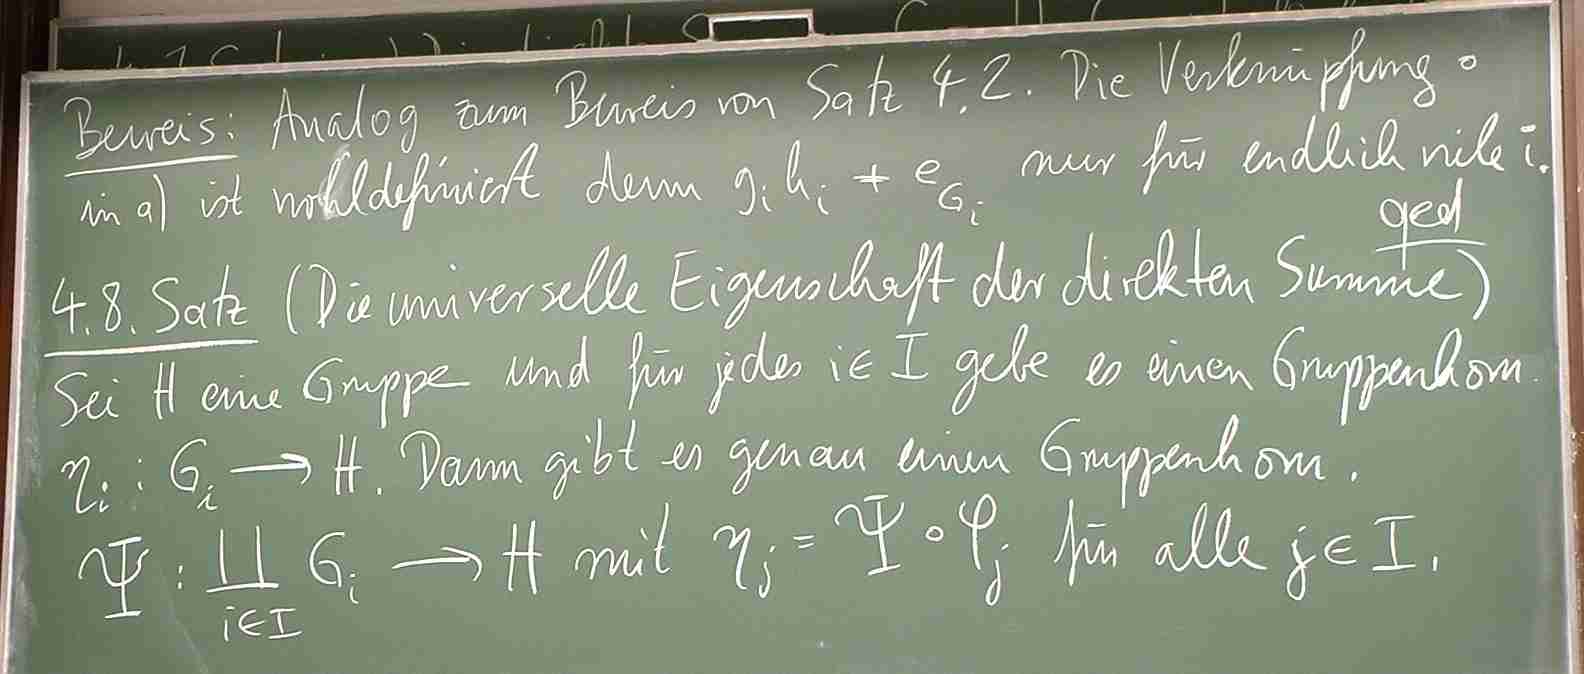 Beweis: Analog zum Beweis von Satz 4.2. Die Verknüpfung ∘
in a) ist wohldefiniert denn g_i h_i ≠ e_{G_i} nur für endlich viele i.
qed
4.8. Satz (Die universelle Eigenschaft der direkten Summe)
Sei H eine Gruppe und für jedes i ∈ I gebe es einen Gruppenhom.
η_i : G_i → H. Dann gibt es genau einen Gruppenhom.
Ψ : ∐_{i∈I} G_i → H mit η_j = Ψ ∘ φ_j für alle j ∈ I.